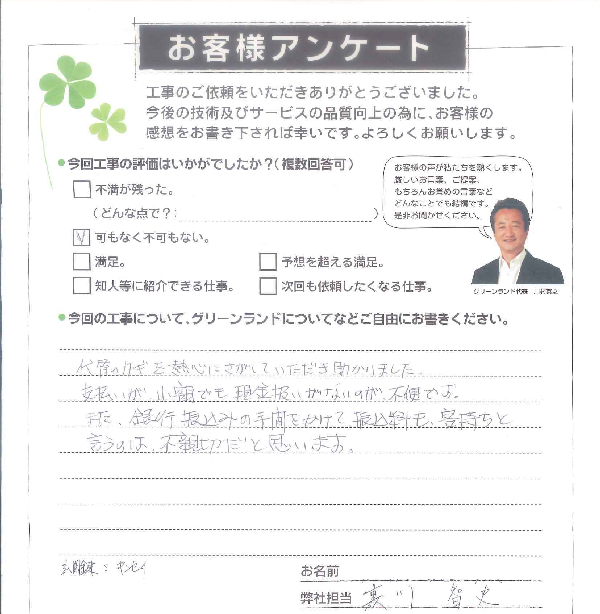 お客様アンケート
工事のご依頼をいただきありがとうございました。
今後の技術及びサービスの品質向上の為に、お客様の
感想をお書き下されば幸いです。よろしくお願いします。
今回工事の評価はいかがでしたか?(複数回答可)
不満が残った。
(どんな点で?: )
可もなく不可もない。
満足。 予想を超える満足。
知人等に紹介できる仕事。 次回も依頼したくなる仕事。
お客様の声が私たちを熱くします。
厳しいお言葉、ご提案、
もちろんお褒めの言葉など
どんなことでも結構です。
是非お聞かせください。
グリーンランド代表
今回の工事について、グリーンランドについてなどご自由にお書きください。
代替のカギを熱心にさがしていただき助かりました。
支払いが、小額でも現金払いがないのが、不便でよ。
また、銀行振込みの手間をかけて振込料も、客持ちと
言うのは、不親切だと思います。
お名前
弊社担当